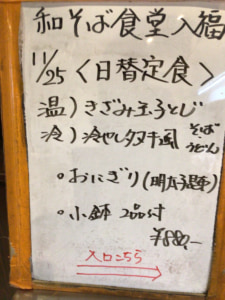 和そば食堂入福
11/25〈日替定食〉
温)きざみ玉子とじ
冷)冷やしタヌキ風 そば・うどん
。おにぎり(明太子高菜)
。小鉢 2品付
¥880,-
入口こちら